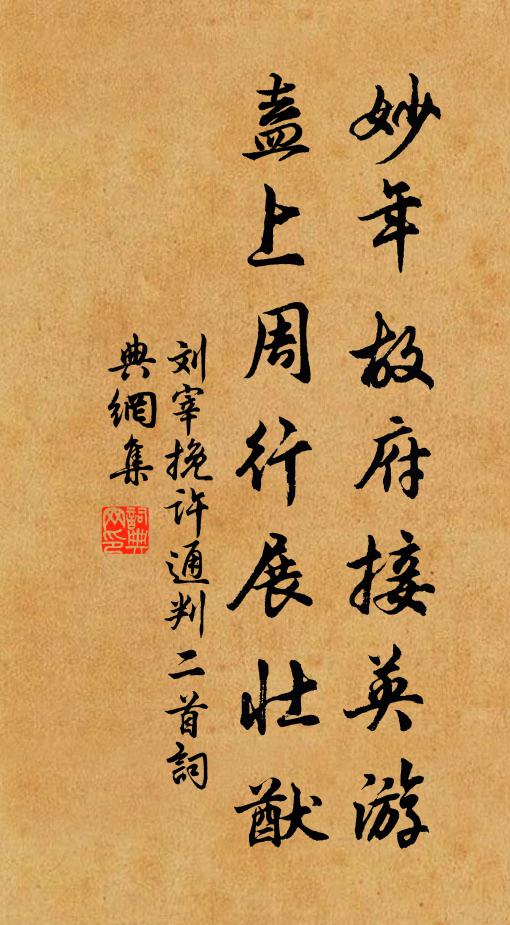 妙年故府接英游
盍上周行展壮猷
刘宰挽许通判二首詞
典網集
詞典
网印